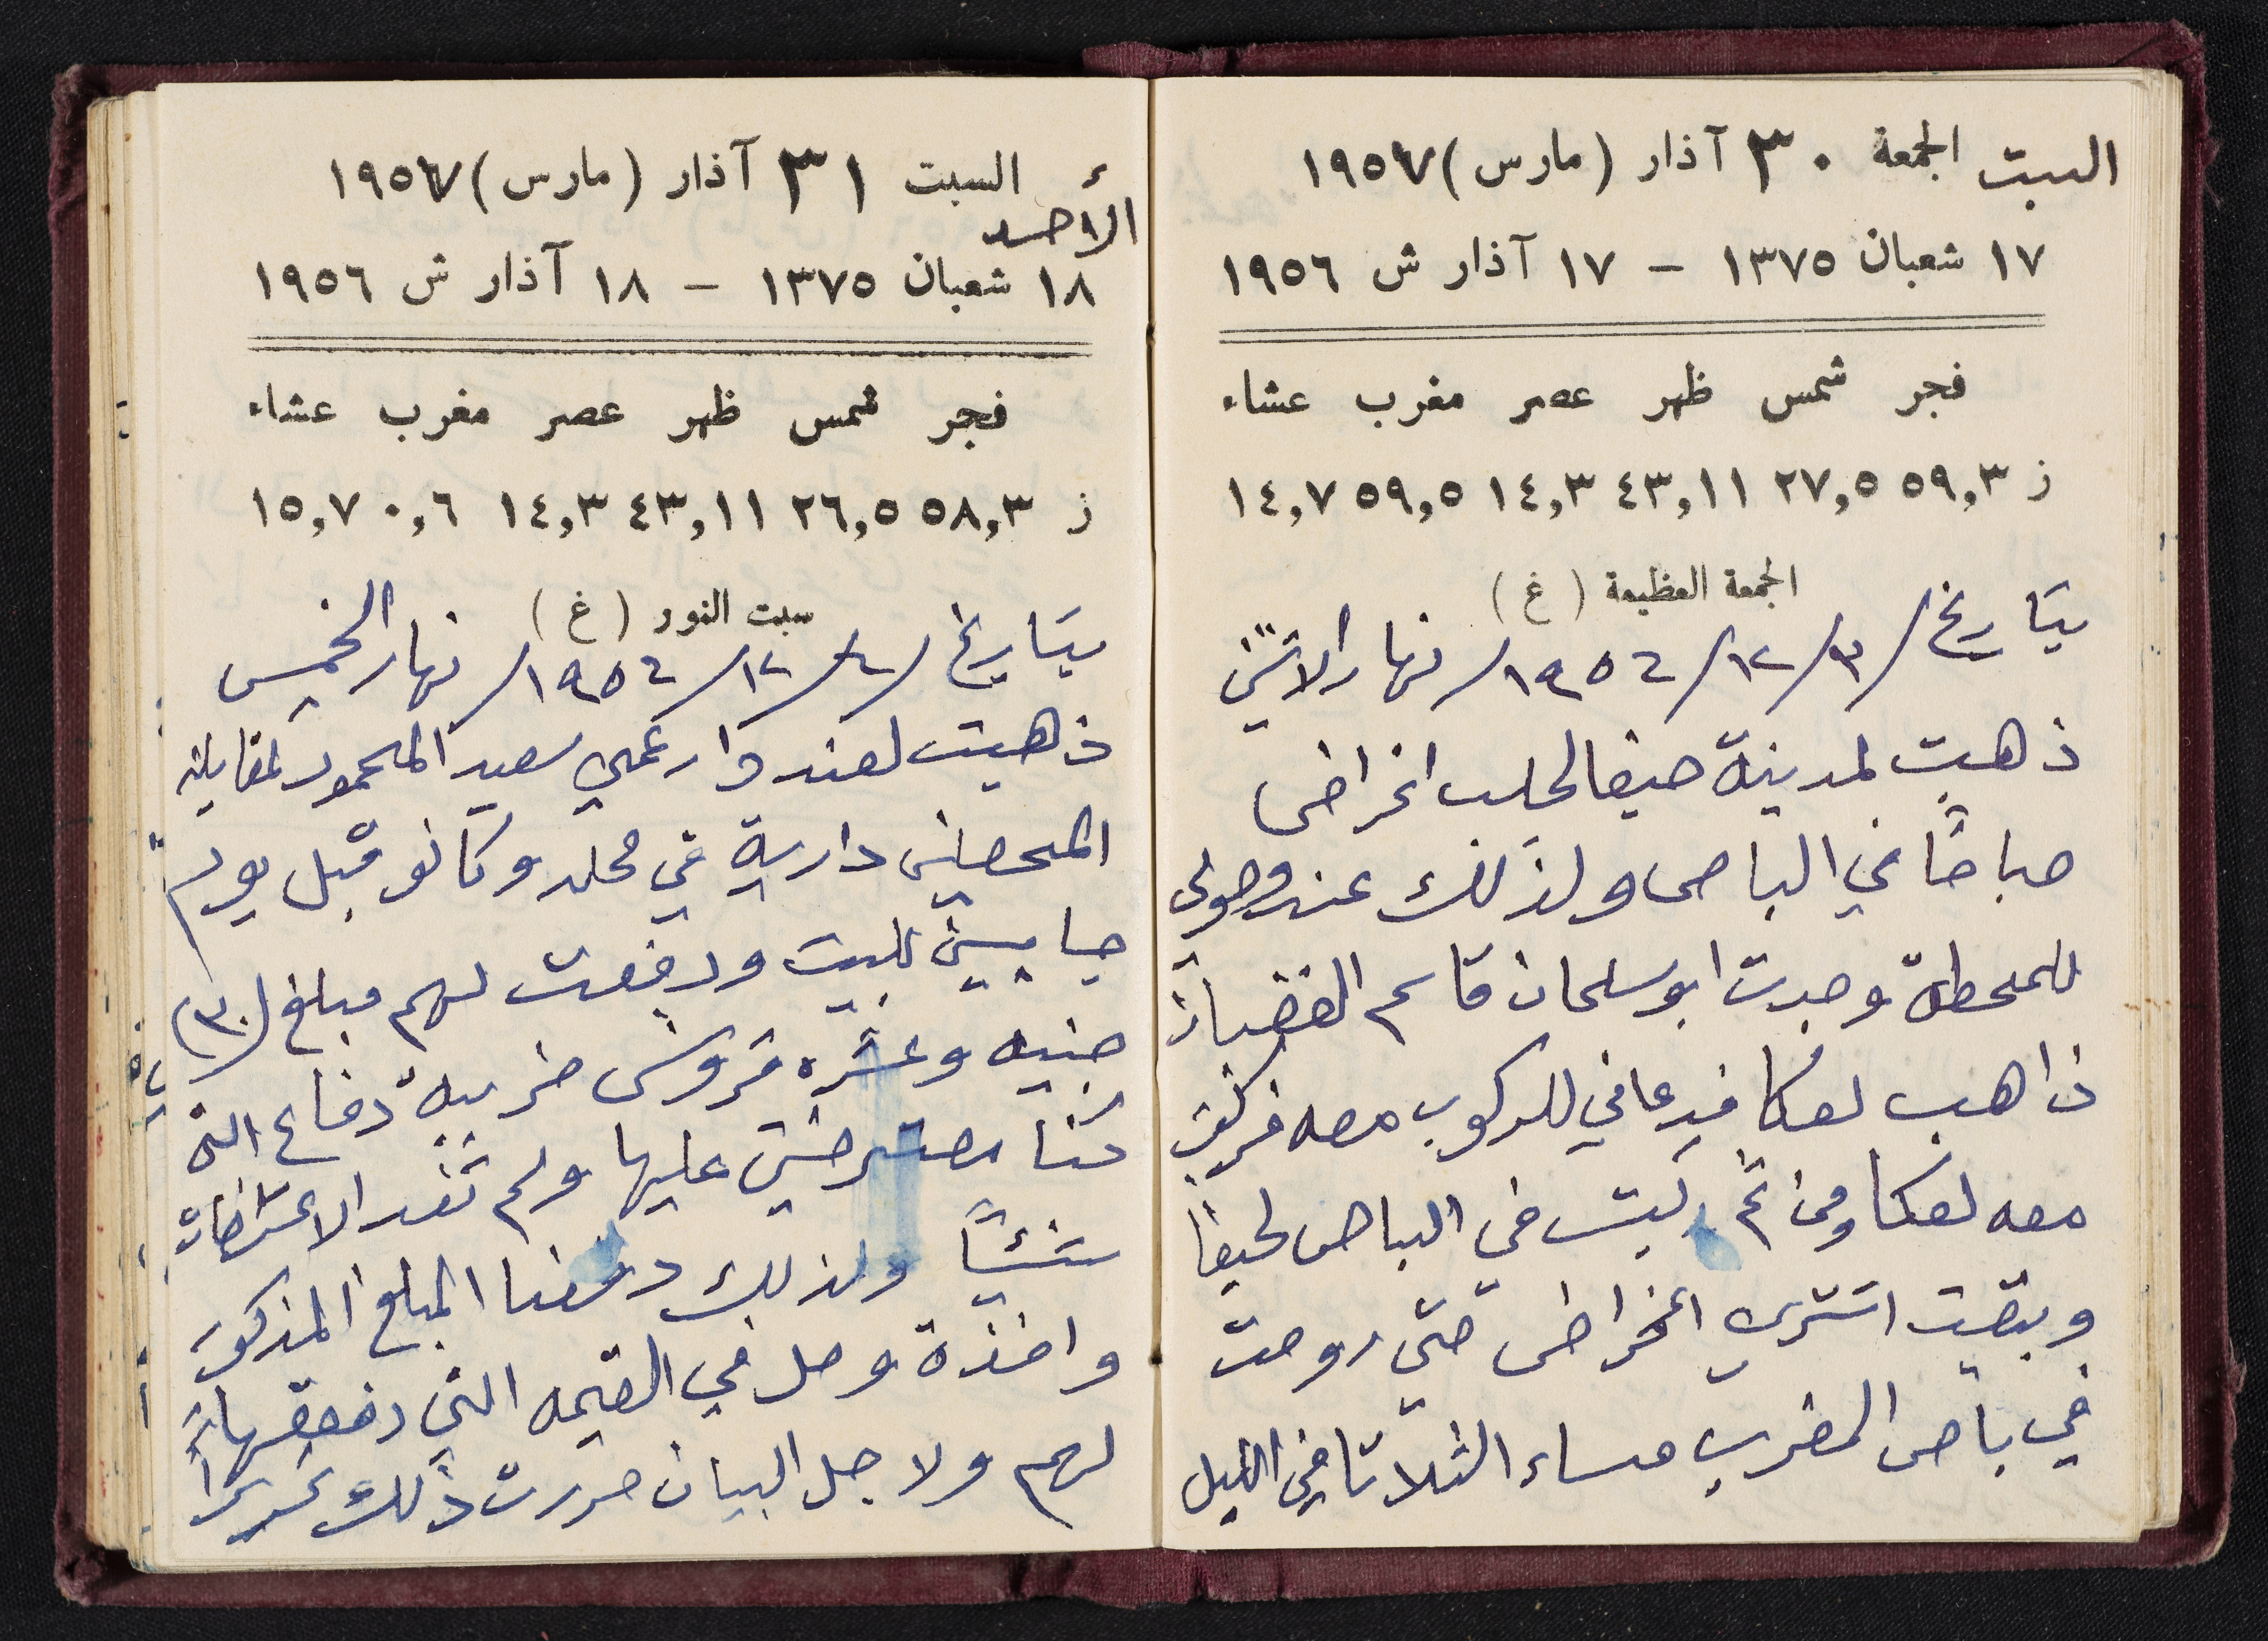 السبت الجمعة ٣٠ آذار (مارس) ١٩٥٧
١٧ شعبان ١٣٧٥ - ١٧ آذار ش ١٩٥٦
فجر شمس ظهر عصر مغرب عشاء
ز ٥٩,٣ ٢٧,٥ ٤٣,١١ ١٤,٣ ٥٩,٥ ١٤,٧
الجمعة العظيمة (غ)
بتاريخ /٣/١٢/١٩٥٤/ نهار الاثنين
ذهبت لمدينة حيفا لجلب اغراض
صباحًا في الباص ولذلك عند وصولي
للمحطة وجدت ابو سلمان قاسم الغضبان
ذاهب لعكا فدعاني للركوب معه فركبت
معه لعكا ومن ثم ركبت في الباص لحيفا
وبقيت اشتري اغراض حتى روحت
في باص المغرب مساء الثلاثا في الليل
السبت ٣١ آذار (مارس) ١٩٥٧
الأحد
١٨ شعبان ١٣٧٥ - ١٨ آذار ش ١٩٥٦
فجر شمس ظهر عصر مغرب عشاء
ز ٥٨,٣ ٢٦,٥ ٤٣,١١ ١٤,٣ ٠,٦ ١٥,٧
سبت النور (غ)
بتاريخ /٤/١٢/١٩٥٤/ نهار الخميس
ذهبت لعند دار عمي سعيد المحمود لمقابلة
دارية في محله وكانو قبل يوم
جايين للبيت ودفعت لهم مبلغ (٣٠)
جنيه وعشره قروش ضريبة دفاع التي
كنا معترضين عليها ولم تفد الاعتراضات
شيئًا ولذلك دفعنا المبلغ المذكور
واخذة وصل في القيمه التي دفعتها
لهم ولاجل البيان حررت ذلك تحريرًا